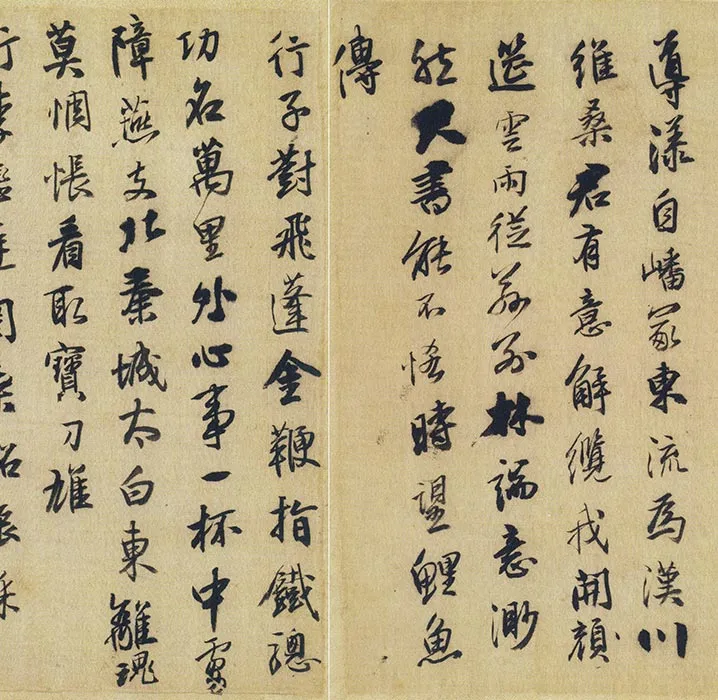 導漾自嶓冢東流為漢川
維桑君有意解纜我開顏
筵雲雨從茲別林端意渺
然尺書能不悋時望鯉魚
傳
行子對飛蓬金鞭指鐵驄
功名萬里外心事一杯中虜
障燕支北秦城太白東離魂
莫惆悵看取寶刀雄